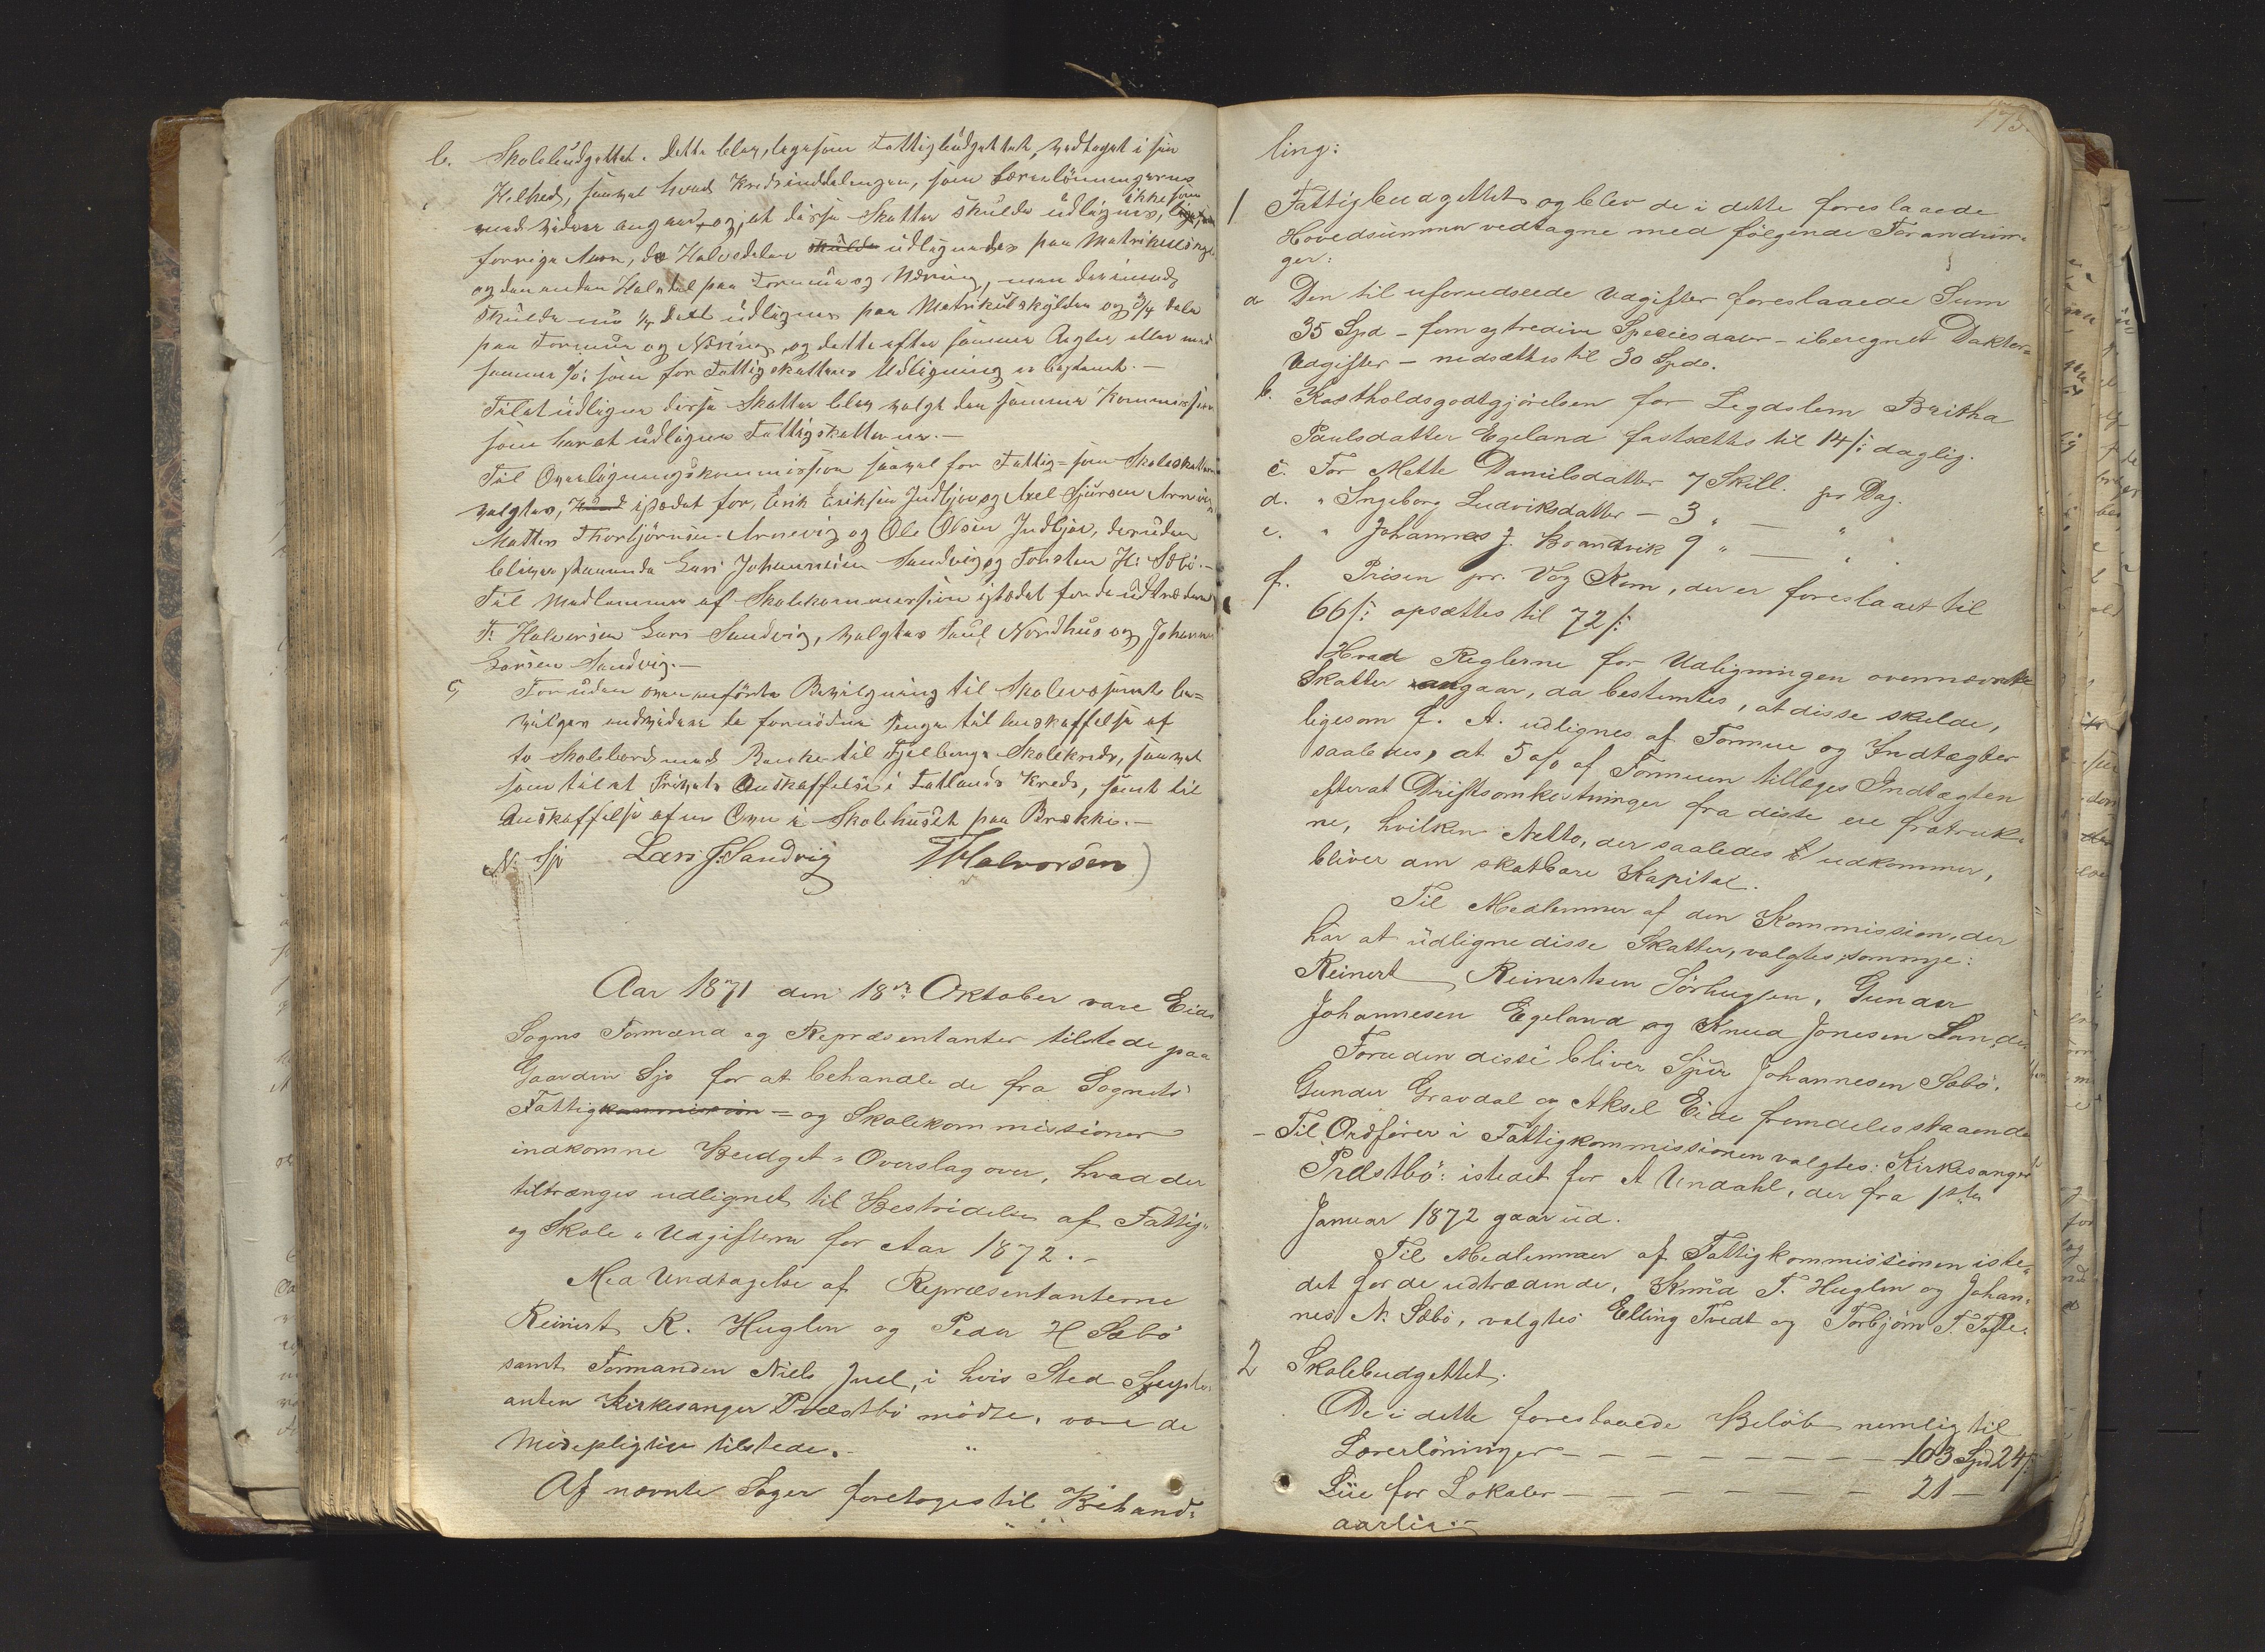 b. Skolebudgettet. Dette blev, ligesom Fattigbudgettet, vedtaget i sin
Helhed, saavel hvad Kredsinddelingen, som Lærerlønningerne
med videre angaar, og, at disse Skatter skulde udlignes, ikke som
forrige Aar, da Halvdelen skulde udlignedes paa Matrikulskyld
og den anden Halvdel paa Formue og Næring, men derimod
skulde nu 1/4 Deel udlignes paa Matrikulskylden og 3/4 Dele
paa Formue og Næring, og dette efter samme Regler eller med
samme %: som for Fattigskattens Udligning er bestemt. —
Til at udligne disse Skatter blev valgt den samme Kommission
som har at udligne Fattigskatterne. —
Til Overligningskommission saavel for Fattig= som Skoleskatten
valgtes, istedet for, Erik Eriksen Indbjoe og Axel Sjursen Arnevig
Mattis Thorbjörnsen Arnevig og Ole Olsen Indbjoe, desuden
bliver staaende Lars Johannesen Sandvig og Torsten H. Sæbö. —
Til Medlemmer af Skolekommission istedet for de udtrædende
T. Halvorsen Lars Sandvig, valgtes Paul Nordhus og Johannes
Larsen Sandvig. —
c, Foruden ovenanførte Bevilgning til Skolevæsenet be=
vilges endvidere de fornødne Penge til Anskaffelse af
to Skolebord med Bænke til Fjelbergs Skolekreds, saavel
som til at Privets Anskaffelse i Fatlands Kreds, samt til
Anskaffelse af en Ovn i Skolehuset paa Brekke. —
N. Sjo Lars J. Sandvig T Halvorsen
Aar 1871 den 18de Oktober vare Eids
Sogns Formænd og Repræsentanter tilstede paa
Gaarden Sjo for at behandle de fra Sognets
Fattigkommission = og Skolekommissioner
indkomne Budget = Overslag over, hvad der
tiltrænges udlignet til Bestridelse af Fattig=
og Skole = Udgifterne for Aar 1872. —
Med Undtagelse af Repræsentanterne
Reinert R. Huglen og Peder H Sæbö
samt Formanden Niels Juel, i hvis Sted Suple
anten Kirkesanger Præstbö mödte, vare de
Mödepligtige tilstede.
Af nævnte Sager foretoges til Behand=
175.
ling:
1 Fattigbudgettet og blev de i dette foreslaaede
Hovedsummer vedtagne med følgende Forandrin=
ger:
a Den til uforudseede Udgifter foreslaaede Sum
35 Spd — fem og tredive Speciesdaler — iberegnet Doktor=
Udgifter — nedsættes til 30 Spd.
b. Kostholdsgodtgjörelsen for Legdslem Britha
Paulsdatter Egeland fastsættes til 14 s: daglig.
c. For Mette Danielsdatter 7 Skill. pr Dag.
d. " Ingeborg Ludviksdatter — 3 "
e. " Johannes J. Brandvik 9 " — " "
f. Prisen pr. Vog Korn, der er foreslaaet til
66 s: opsættes til 72 s:
Hvad Reglerne for Udligningen ovennævnte
Skatter angaar, da bestemtes, at disse skulde,
ligesom f. A. udlignes af Formue og Indtægter
saaledes, at 5 o/o af Formuen tillægges Indtægten
efterat Driftsomkostninger fra diste ere fratruk=
ne, hvilken Netto, der saaledes udkommer,
bliver den skatbare Kapital.
Til Medlemmer af den Kommission, der
har at udligne disse Skatter, valgtes, somnye:
Reinert Reinertsen Sörhuglen, Gunder
Johannesen Egeland og Knud Jonesen Lande
Foruden disse bliver Sjur Johannesen Sæbö,
Gunder Gravdal og Aksel Eide fremdeles staaende
— Til Ordförer i Fattigkommissionen valgtes: Kirkesanger
Præstbö: istedet for A Undahl, der fra 1ste
Januar 1872 gaar ud.
Til Medlemmer af Fattigkommissionen iste=
det for de udtrædende, Knud T. Huglen og Johan=
nes N. Sæbö, valgtes Elling Tvedt og Torbjörn T. Tofte.
2 Skolebudgettet.
De i dette foreslaaede Belöb nemlig til
Lærerlöninger — — — — — — — 103 Spd 24 s:
Leie for Lokaler — — — — — — — 21 —
aarlig. —